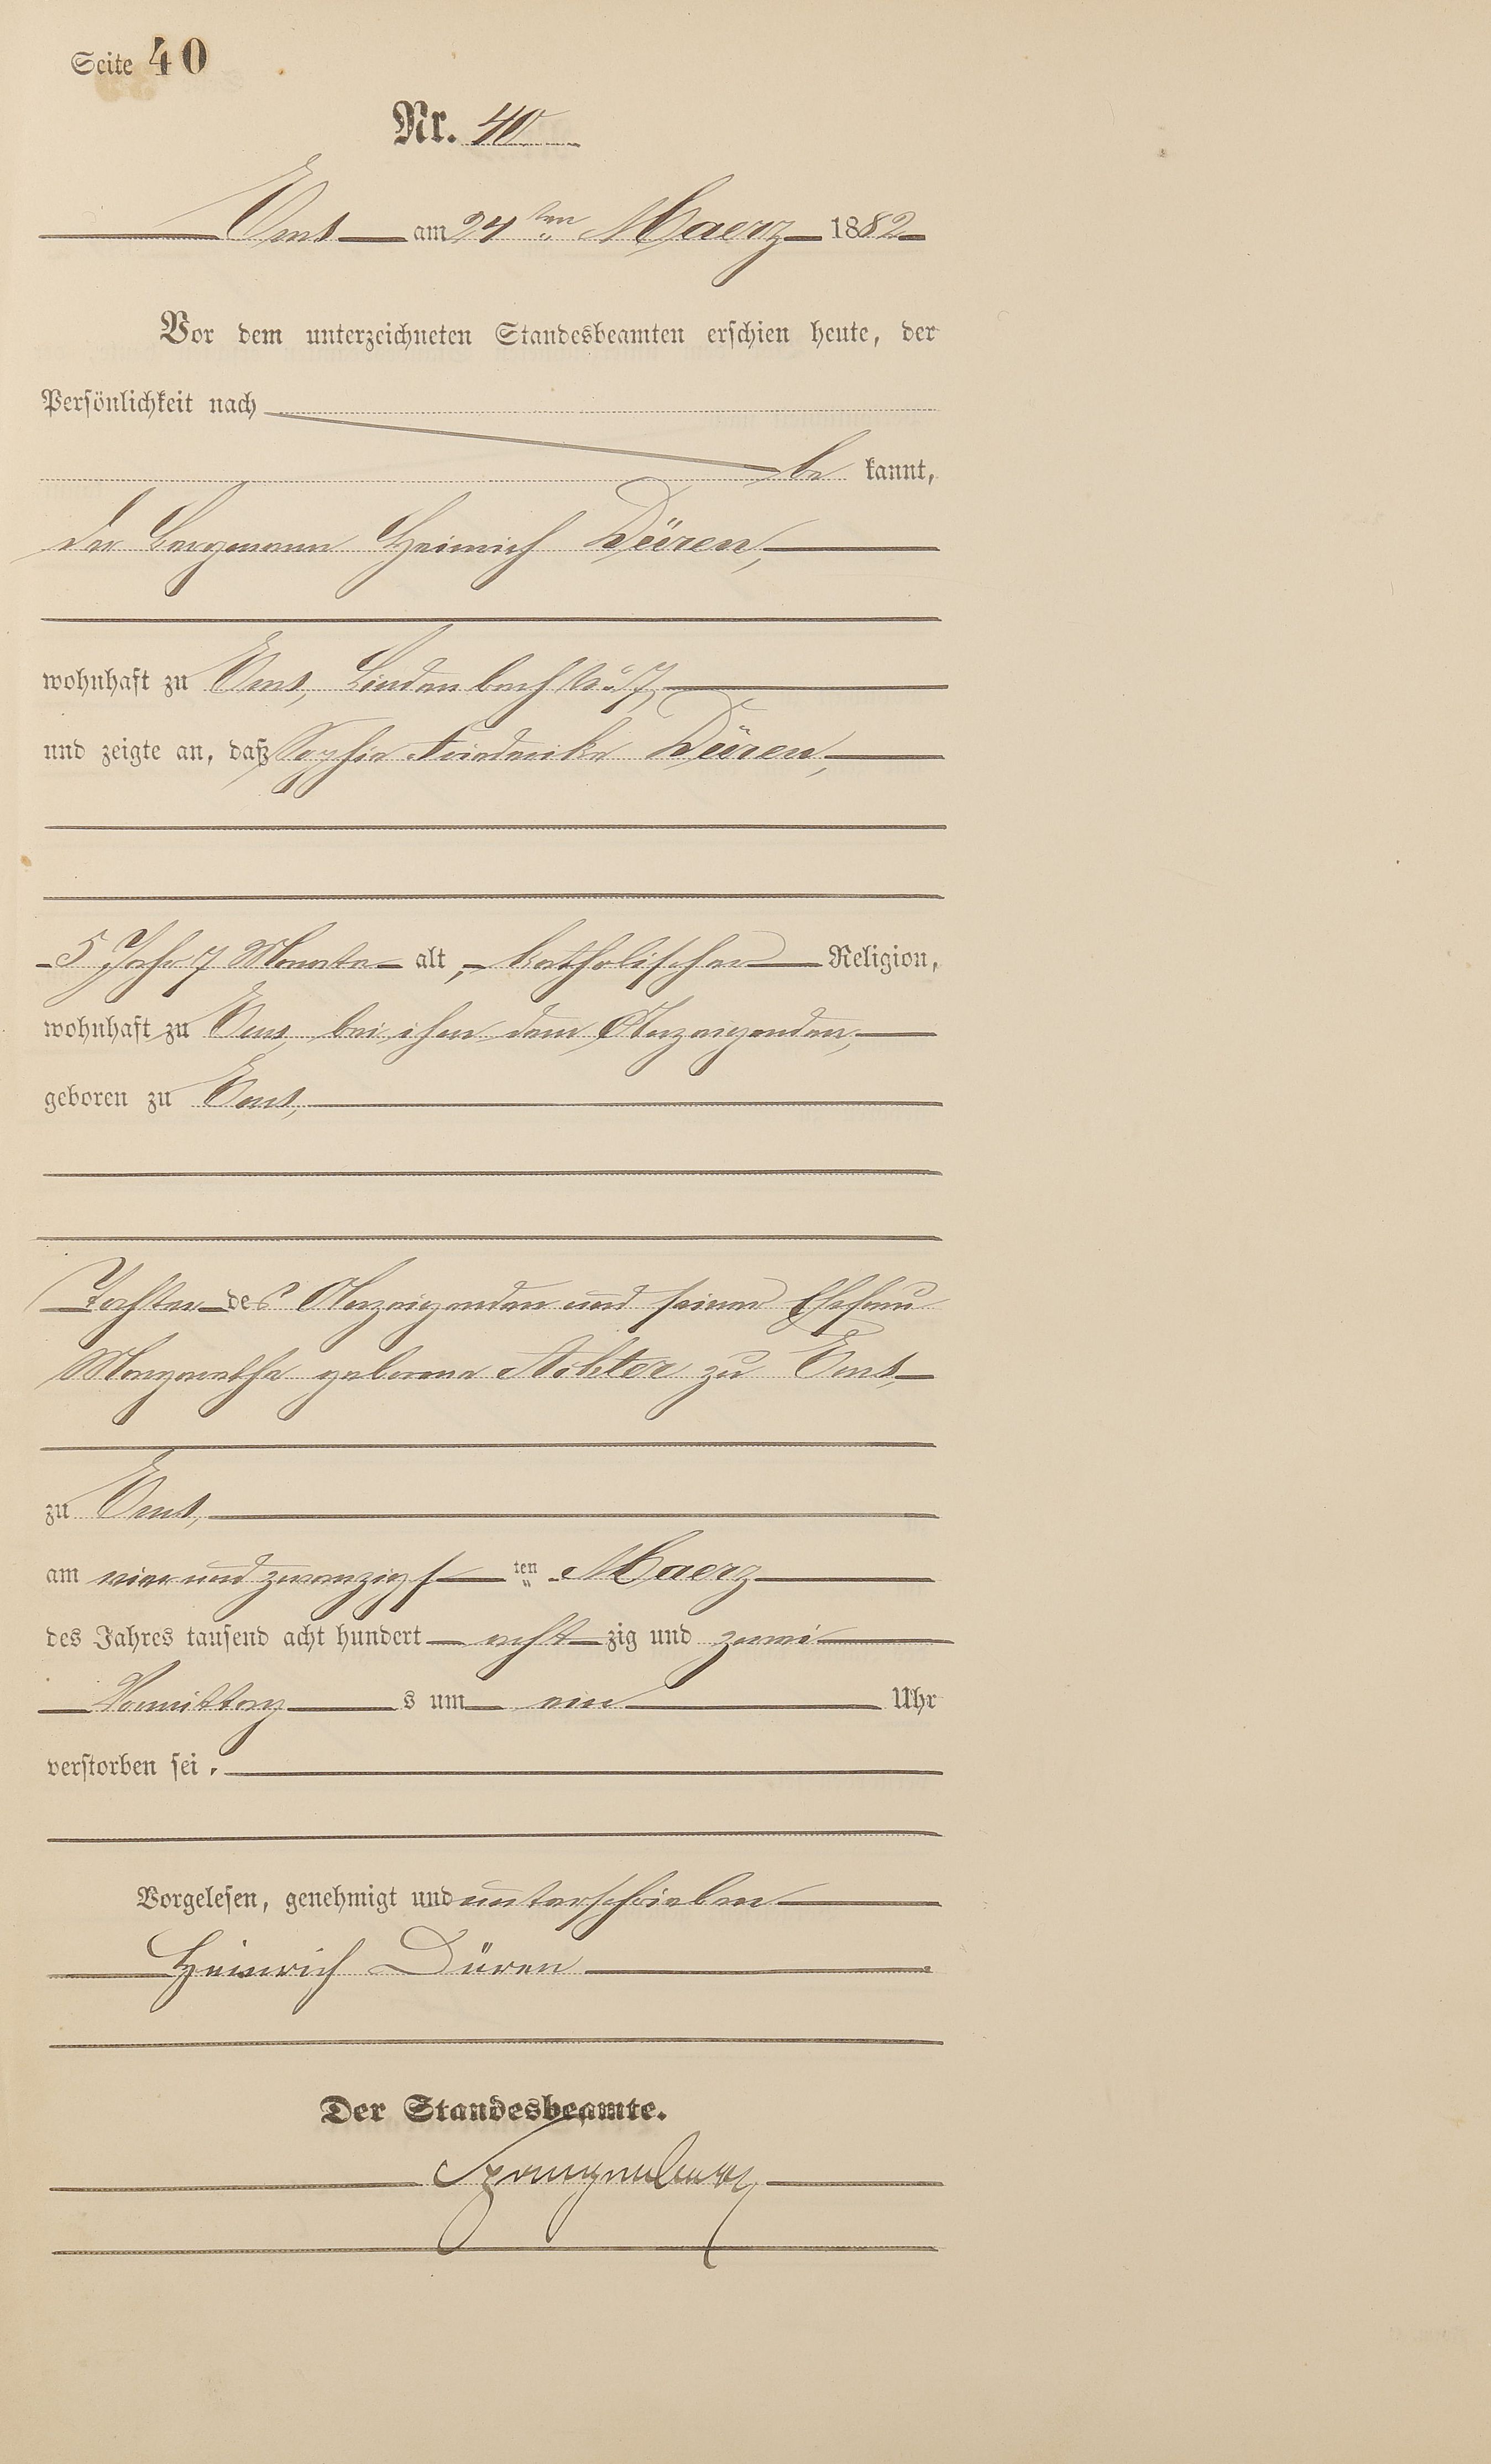 Seite 40
Nr. 40
Ems am 24ten Maerz 1882
Vor dem unterzeichneten Standesbeamten erschien heute, der
Persönlichkeit nach
be kannt,
der Bergmann Heinrich Düren,
wohnhaft zu Ems, Lindenbach
und zeigte an, daß Sophie Friederike Düren,
5 Jahr 7 Monate alt, katholischer Religion,
wohnhaft zu Ems, bei ihm dem Anzeigenden,
geboren zu Ems,
Tochter des Anzeigenden und seiner Ehefrau
Margaretha geborene zu Ems,
zu Ems,
am vier und zwanzigsten Maerz
des Jahres tausend acht hundert achtzig und zwei
Vormittags um ein Uhr
verstorben sei.
Vorgelesen, genehmigt und unterschrieben
Heinrich Düren
Der Standesbeamte.